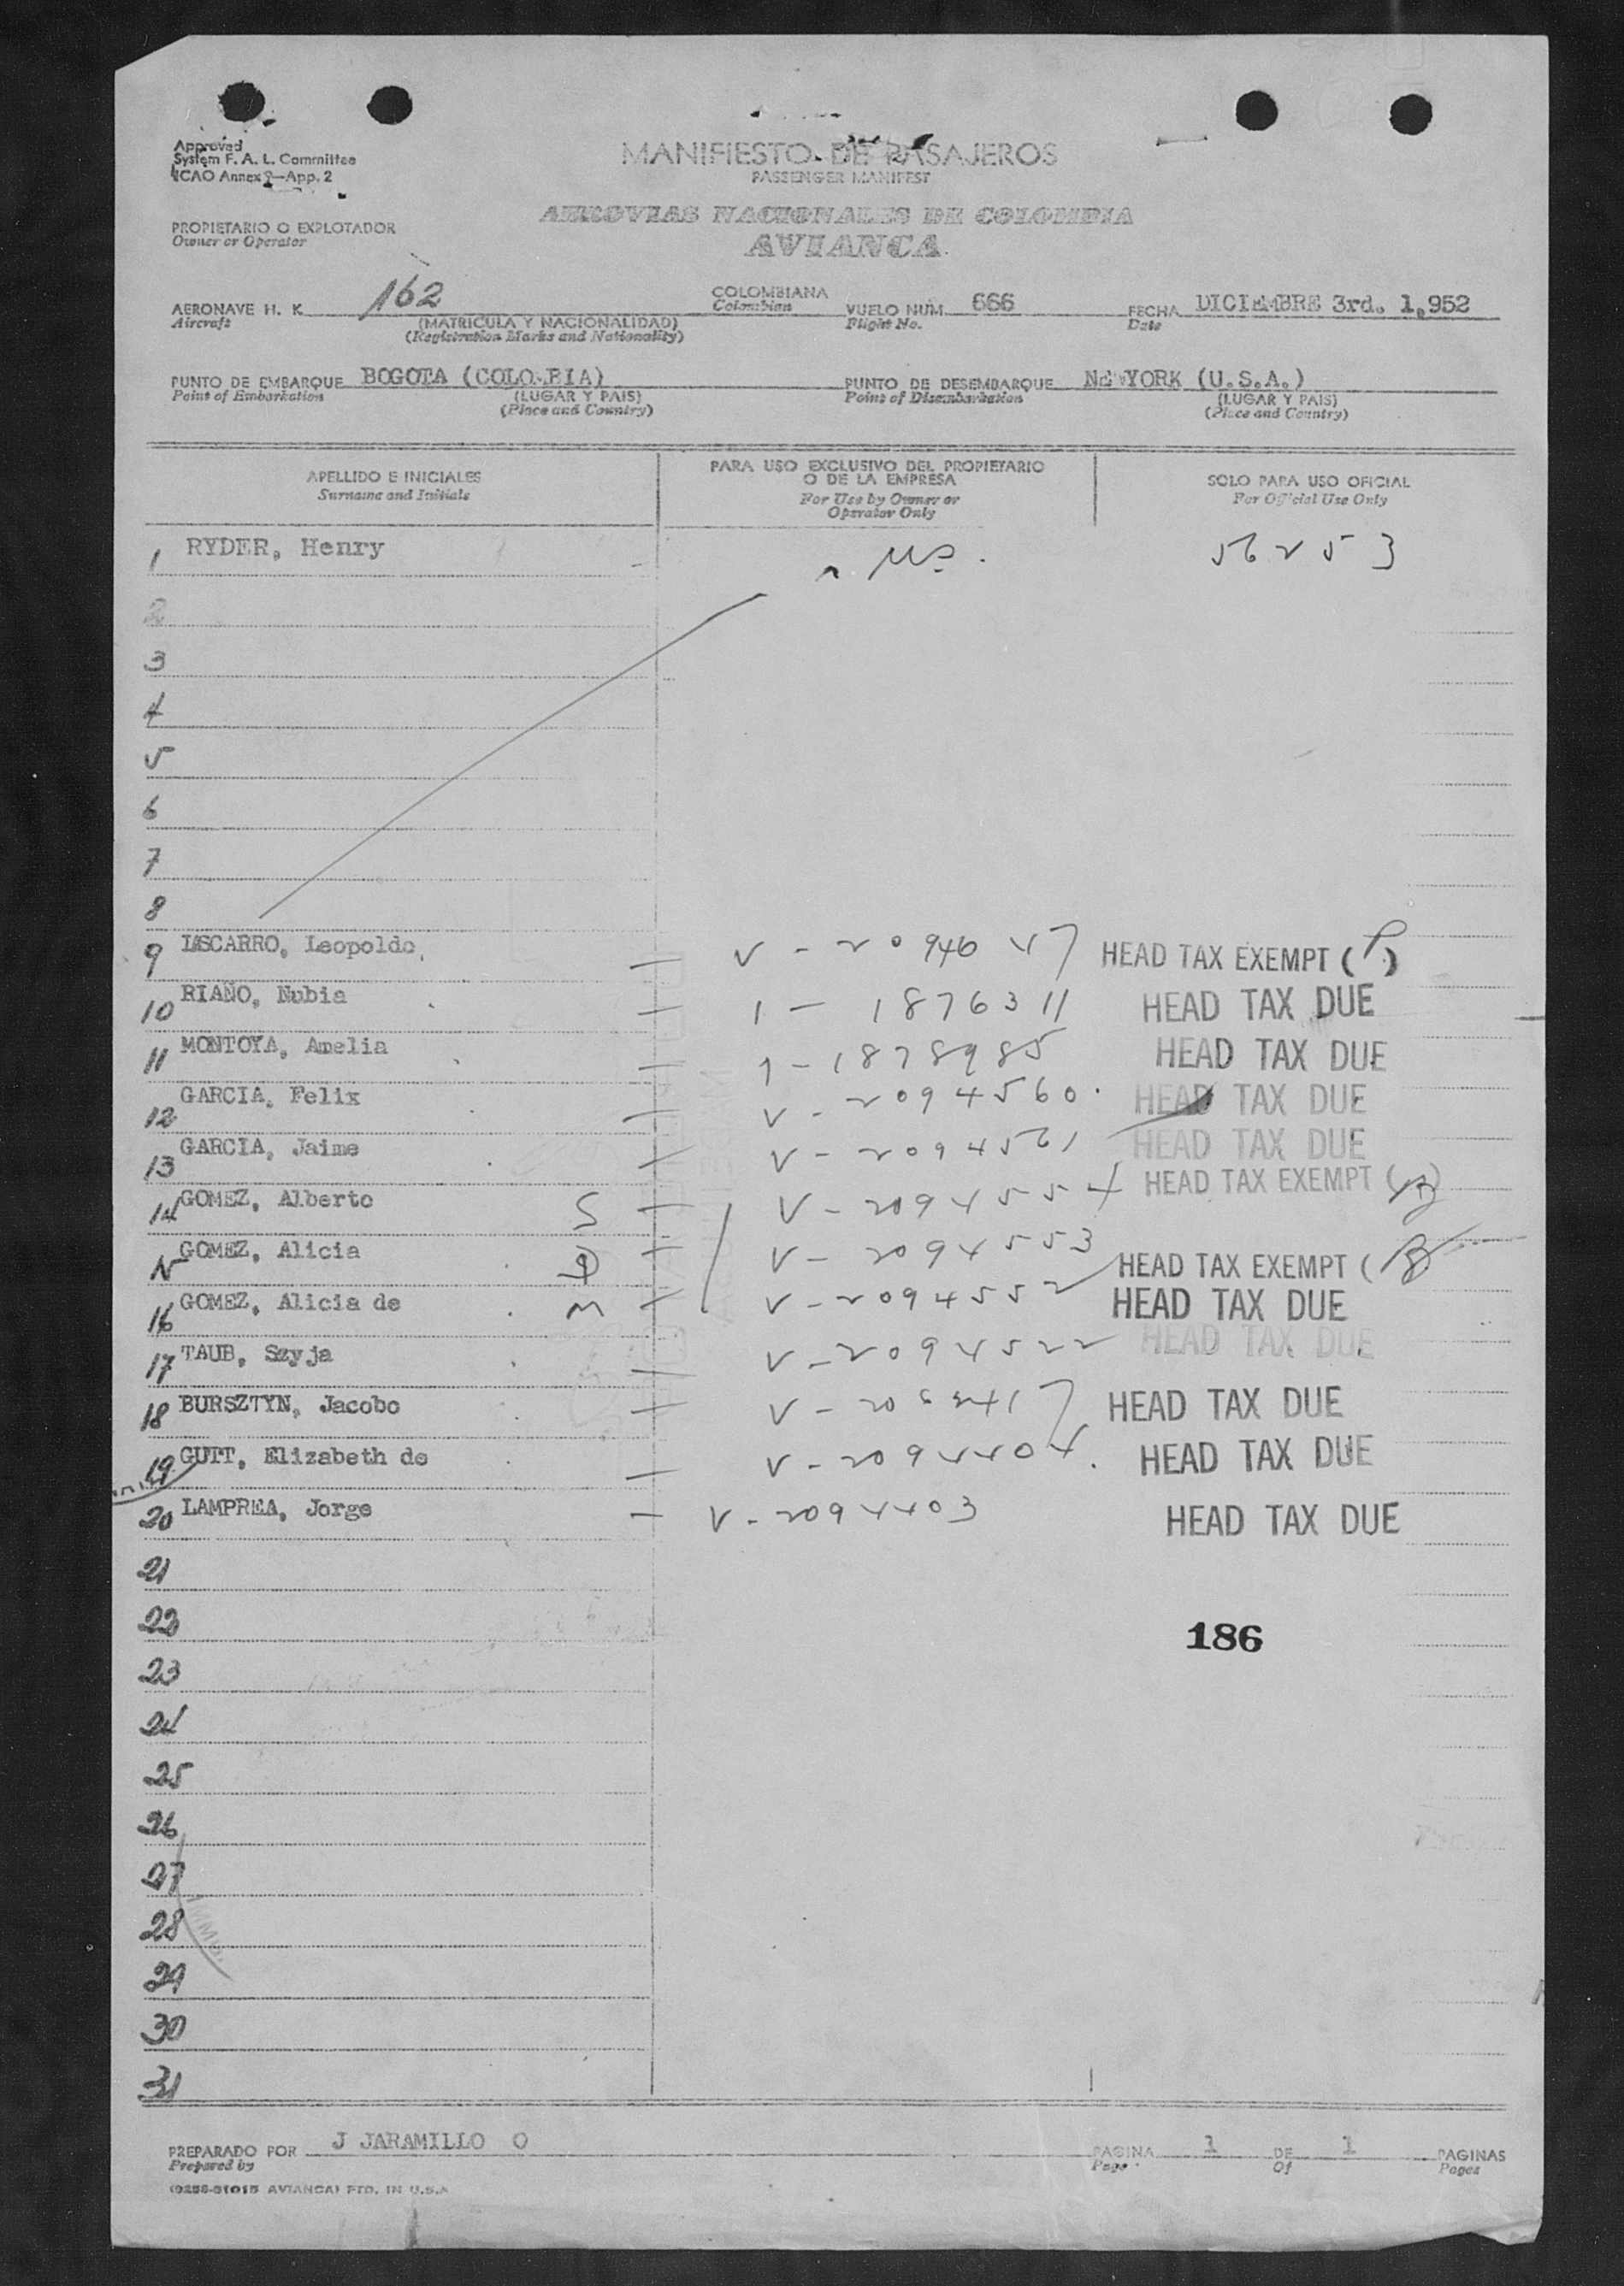 Approved
System F. A. L. Committee
ICAO Annex 9—App. 2
MANIFIESTO DE PASAJEROS
PASSENGER MANIFEST
AEROVIAS NACIONALES DE COLOMBIA
AVIANCA
PROPIETARIO O EXPLOTADOR
Owner or Operator
AERONAVE H. K. 162 COLOMBIANA VUELO NUM. 666 FECHA DICIEMBRE 3rd. 1,952
Aircraft (MATRICULA Y NACIONALIDAD) Colombian Flight No. Date
(Registration Marks and Nationality)
PUNTO DE EMBARQUE BOGOTA (COLOMBIA) PUNTO DE DESEMBARQUE NEWYORK (U.S.A.)
Point of Embarkation (LUGAR Y PAIS) Point of Disembarkation (LUGAR Y PAIS)
(Place and Country) (Place and Country)
APELLIDO E INICIALES PARA USO EXCLUSIVO DEL PROPIETARIO SOLO PARA USO OFICIAL
O DE LA EMPRESA
Surname and Initials For Use by Owner or For Official Use Only
Operator Only
1 RYDER, Henry 56253
2
3
4
5
6
7
8
9 LASCARRO, Leopoldo HEAD TAX EXEMPT (P)
10 RIAÑO, Nubia 1-1876311 HEAD TAX DUE
11 MONTOYA, Amelia 1-1878985 HEAD TAX DUE
12 GARCIA, Felix V-2094560 HEAD TAX DUE
13 GARCIA, Jaime V-2094561 HEAD TAX DUE
14 GOMEZ, Alberto S V-2094554 HEAD TAX EXEMPT
15 GOMEZ, Alicia V-2094553 HEAD TAX EXEMPT
16 GOMEZ, Alicia de M V-2094552 HEAD TAX DUE
17 TAUB, Szyja V-2094522 HEAD TAX DUE
18 BURSZTYN, Jacobo HEAD TAX DUE
19 GUTT, Elizabeth de HEAD TAX DUE
20 LAMPREA, Jorge HEAD TAX DUE
21
22
186
23
24
25
26
27
28
29
30
31
PREPARADO POR J JARAMILLO O PAGINA 1 DE 1 PAGINAS
Prepared by Page Of Pages
AVIANCA) PTD. IN U.S.A.